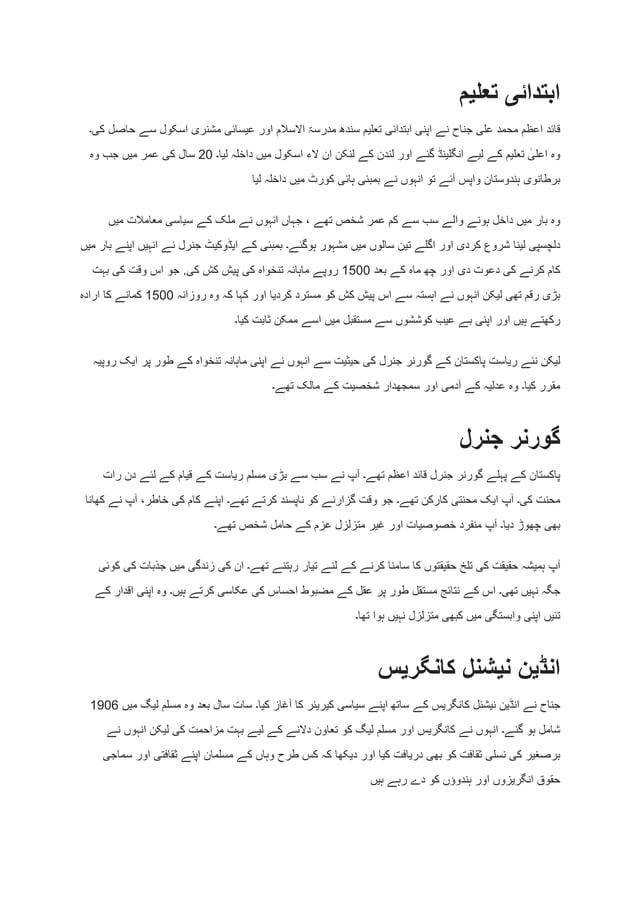 ابتدائی تعلیم
قائد اعظم محمد علی جناح نے اپنی ابتدائی تعلیم سندھ مدرسۃ الاسلام اور عیسائی مشنری اسکول سے حاصل کی۔
وہ اعلیٰ تعلیم کے لیے انگلینڈ گئے اور لندن کے لنکن ان لاء اسکول میں داخلہ لیا۔ 20 سال کی عمر میں جب وہ
برطانوی ہندوستان واپس آئے تو انہوں نے بمبئی ہائی کورٹ میں داخلہ لیا
وہ بار میں داخل ہونے والے سب سے کم عمر شخص تھے ، جہاں انہوں نے ملک کے سیاسی معاملات میں
دلچسپی لینا شروع کردی اور اگلے تین سالوں میں مشہور ہوگئے۔ بمبئی کے ایڈوکیٹ جنرل نے انہیں اپنے بار میں
کام کرنے کی دعوت دی اور چھ ماہ کے بعد 1500 روپے ماہانہ تنخواہ کی پیش کش کی. جو اس وقت کی بہت
بڑی رقم تھی لیکن انہوں نے ابستہ سے اس پیش کش کو مسترد کردیا اور کہا کہ وہ روزانہ 1500 کمانے کا ارادہ
رکھتے ہیں اور اپنی بے عیب کوششوں سے مستقبل میں اسے ممکن ثابت کیا۔
لیکن نئے ریاست پاکستان کے گورنر جنرل کی حیثیت سے انہوں نے اپنی ماہانہ تنخواہ کے طور پر ایک روپیہ
مقرر کیا۔ وہ عدلیہ کے آدمی اور سمجھدار شخصیت کے مالک تھے۔
گورنر جنرل
پاکستان کے پہلے گورنر جنرل قائد اعظم تھے۔ آپ نے سب سے بڑی مسلم ریاست کے قیام کے لئے دن رات
محنت کی۔ آپ ایک محنتی کارکن تھے۔ جو وقت گزارنے کو ناپسند کرتے تھے۔ اپنے کام کی خاطر، آپ نے کھانا
بھی چھوڑ دیا۔ آپ منفرد خصوصیات اور غیر متزلزل عزم کے حامل شخص تھے۔
آپ ہمیشہ حقیقت کی تلخ حقیقتوں کا سامنا کرنے کے لئے تیار رہتنے تھے۔ ان کی زندگی میں جذبات کی کوئی
جگہ نہیں تھی۔ اس کے نتائج مستقل طور پر عقل کے مضبوط احساس کی عکاسی کرتے ہیں۔ وہ اپنی اقدار کے
تئیں اپنی وابستگی میں کبھی متزلزل نہیں ہوا تھا۔
انڈین نیشنل کانگریس
جناح نے انڈین نیشنل کانگریس کے ساتھ اپنے سیاسی کیریئر کا آغاز کیا۔ سات سال بعد وہ مسلم لیگ میں 1906
شامل ہو گئے۔ انہوں نے کانگریس اور مسلم لیگ کو تعاون دلانے کے لیے بہت مزاحمت کی لیکن انہوں نے
برصغیر کی نسلی ثقافت کو بھی دریافت کیا اور دیکھا کہ کس طرح وہاں کے مسلمان اپنے ثقافتی اور سماجی
حقوق انگریزوں اور ہندوؤں کو دے رہے ہیں